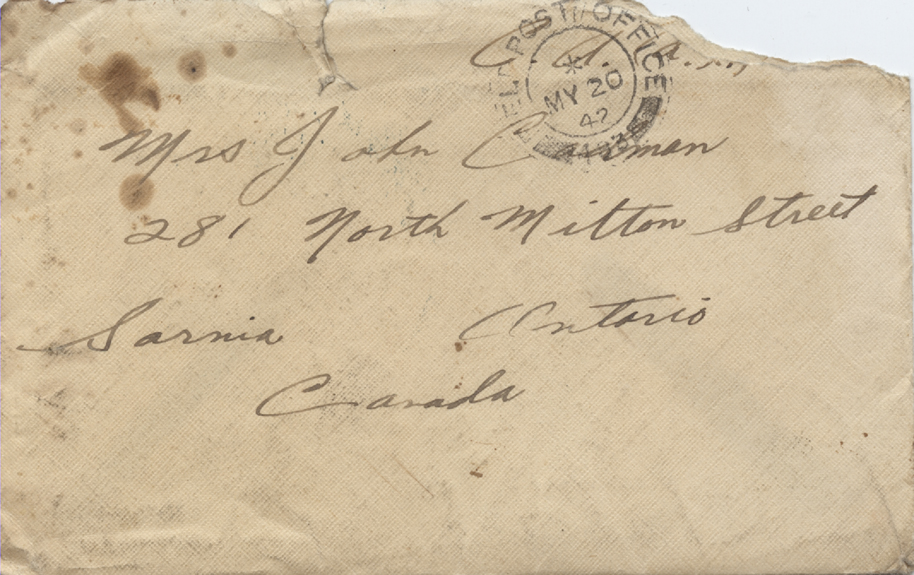 POST OFFICE
MY 20
42
Mrs John Cairman
281 North Milton Street
Sarnia Ontario
Canada